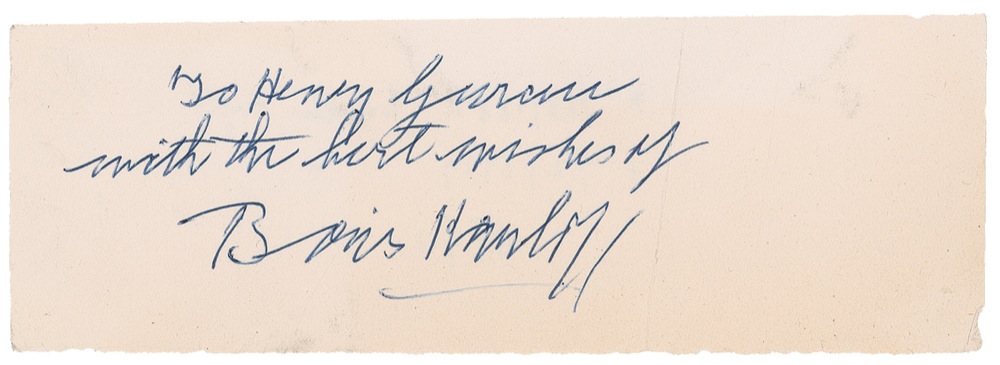 To Henry
with the best wishes of
Boris Karloff